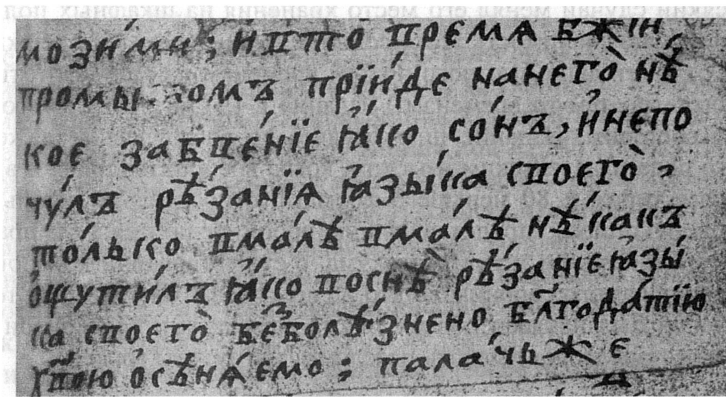 мозѝми; и въ то̀ время бж҃іи
промы зомъ прїи́де нанего̀ нѣ
кое забве́нїе ꙗ҆́ко со́нъ, и҆непо
чу́лъ рѣ́занїѧ ꙗзы́ка своего̀,
то́лько вма́лѣ вма́лѣ нѣ́какъ
ѻщути́лъ ꙗ҆́ко воснѣ̀ рѣ́занїе ꙗзы́
ка своего̀ беⷥболѣ́знено бл҃года́тїю
хв҃ою ѻсѣнѧ́емо; пала́чь ж е